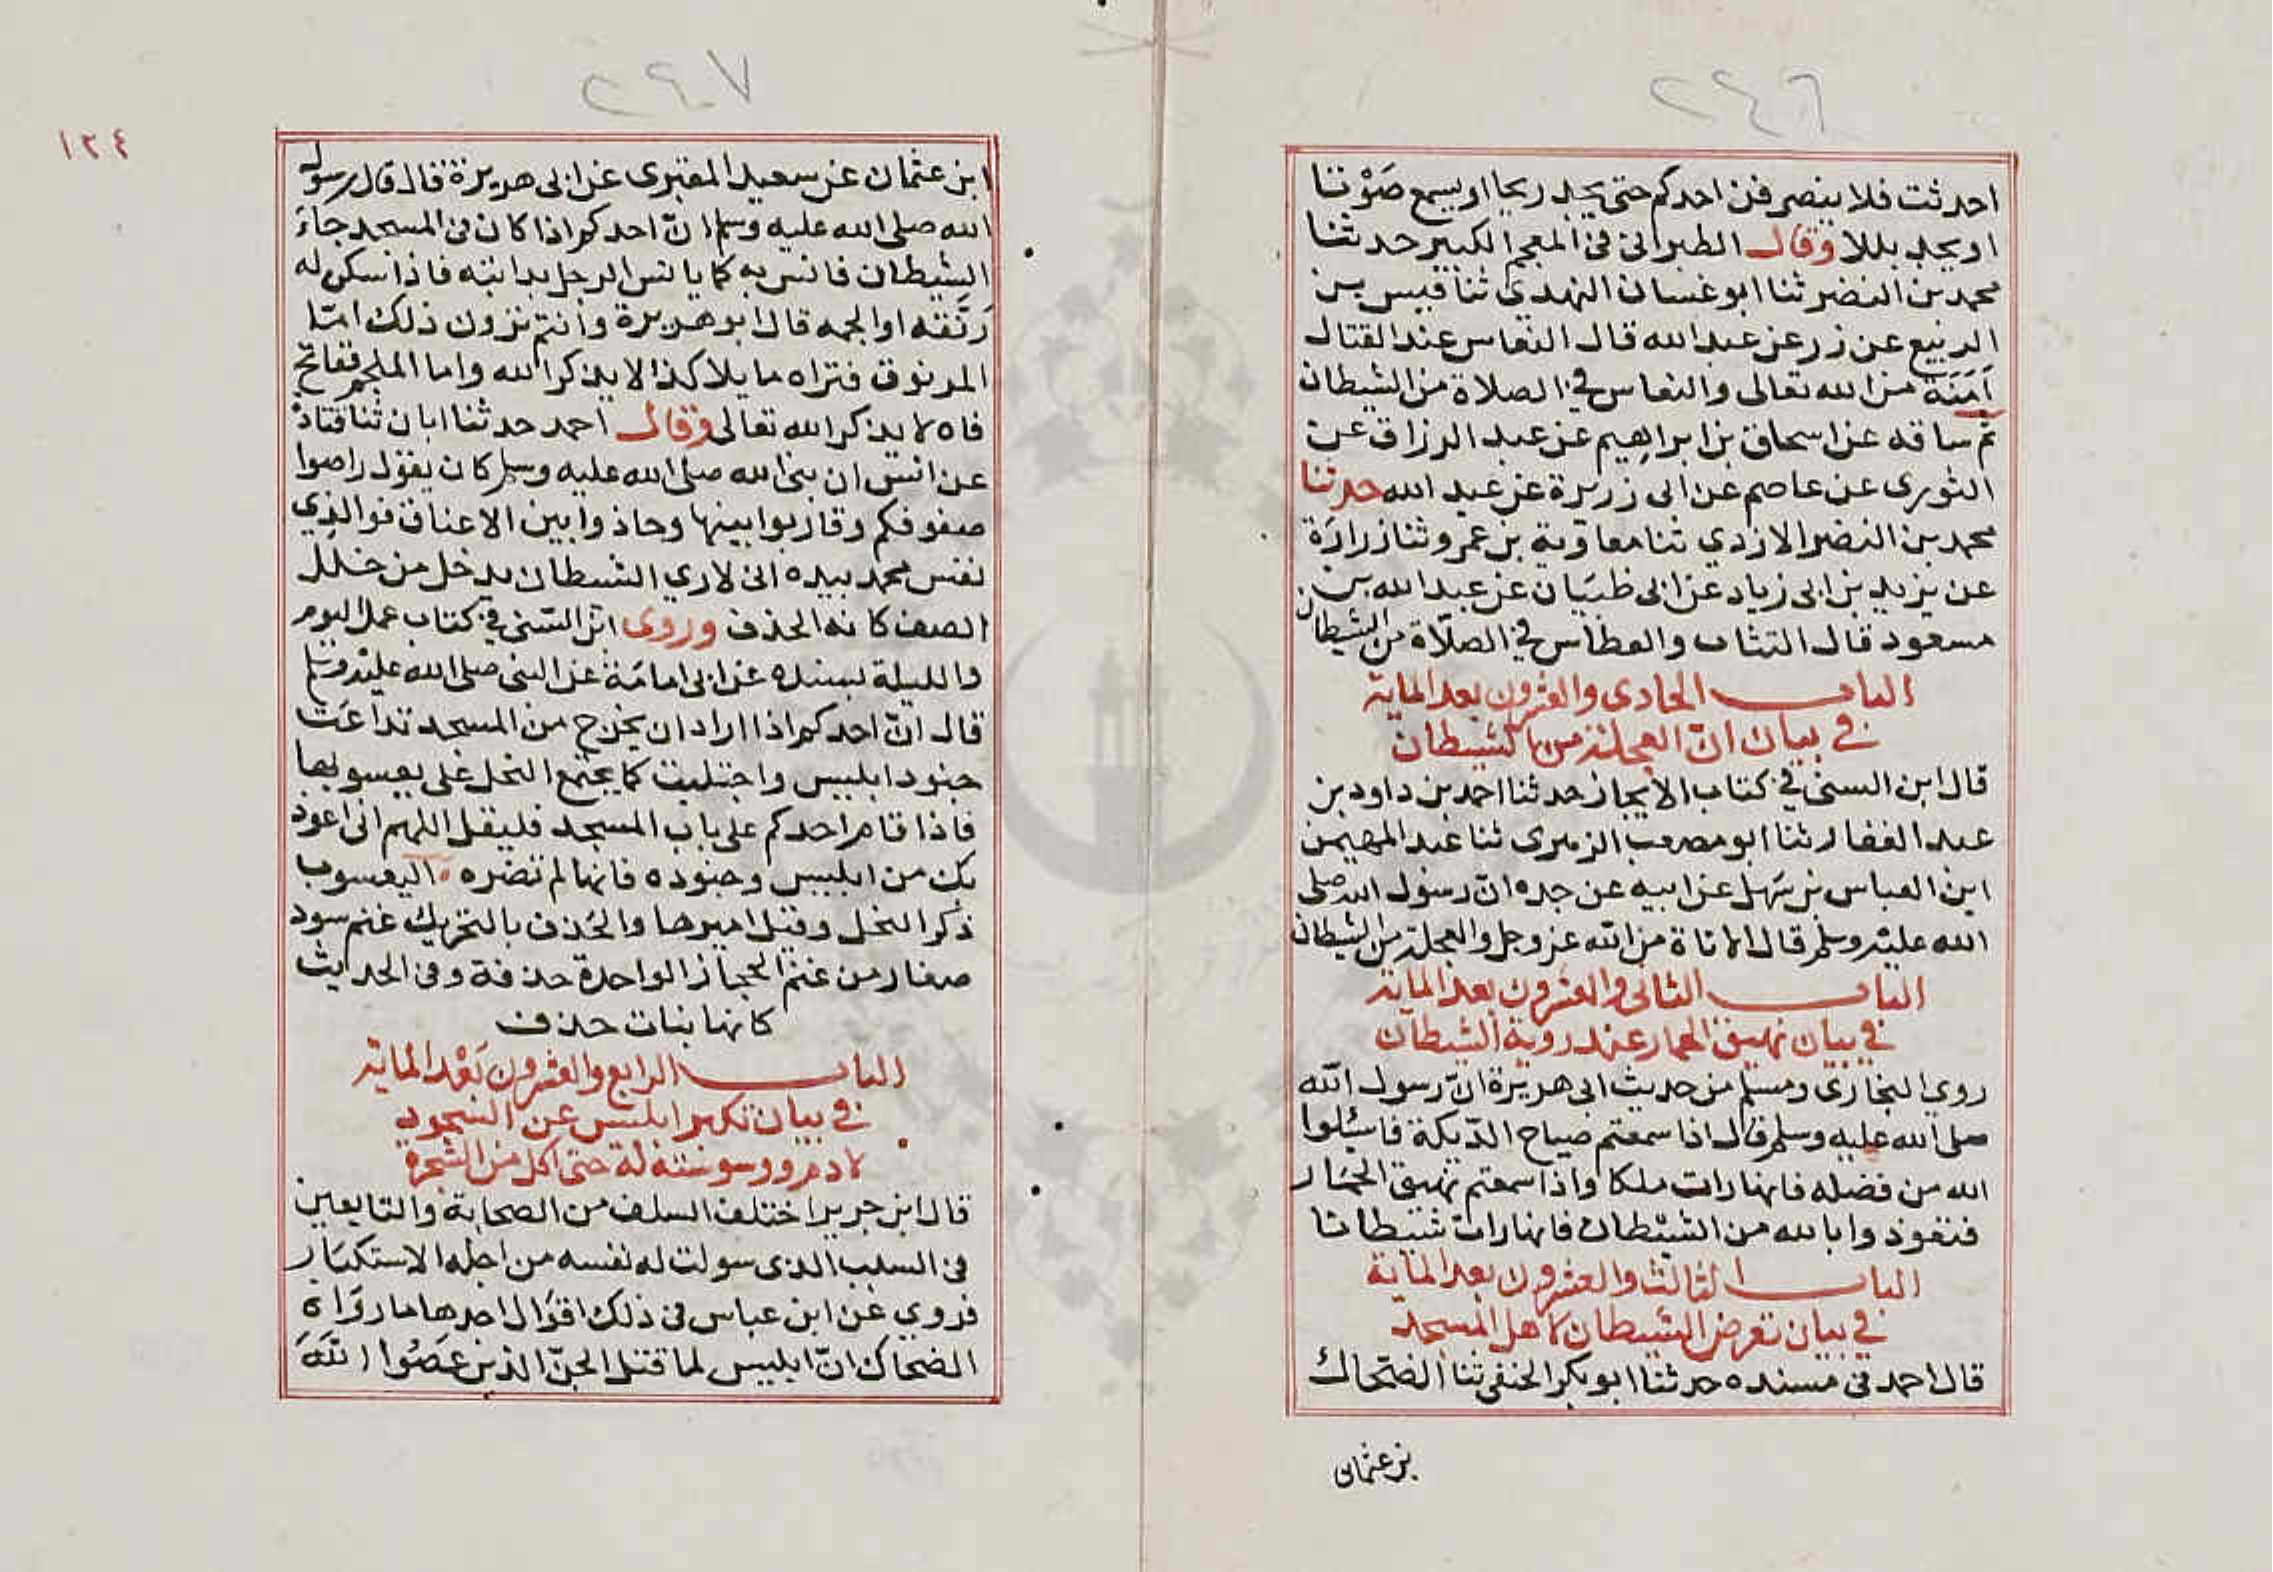 ٢٤٦
احدثت فلا ينصرفن احدكم حتى يجد ريحا او يسمع صَوْتا
او يجد بللا وقال الطبرانى فى المعجم الكبير حدثنا
محمد بن النضر ثنا ابو غسان النهدي ثنا قيس بن
الربيع عن زر عن عبد الله قال النعاس عند القتال
اَمَنَة من الله تعالى والنعاس في الصلاة من الشيطان
ثم ساقه عن اسحاق بن ابراهيم عن عبد الرزاق عن
الثورى عن عاصم عن ابى زريرة عن عبد الله حدثنا
محمد بن النضر الازدي ثنا معاوية بن عمرو ثنا زرارَة
عن يزيد بن ابى زياد عن ابى ظبيَان عن عبد الله بن
مسعود قال التثاب والعطاس في الصلاة من الشيطان
الباب الحادى والعشرون بعد الماية
في بيان انّ العجلة من الشيطان
قال ابن السنى في كتاب الايجاز حدثنا احمد بن داود بن
عبد الغفار ثنا ابو مصعب الزهرى ثنا عبد المهيمن
ابن العباس بن سَهل عن ابيه عن جده انّ رسول الله صلى
الله عليه وسلم قال الاناة من الله عز وجل والعجلة من الشيطان
الباب الثانى والعشرون بعد الماية
في بيان نهيق الحمار عند روية الشيطان
روي البخارى ومسلم من حديث ابى هريرة انّ رسول الله
صلى الله عليه وسلم قال اذا سمعتم صياح الدّيكة فاسئلوا
الله من فضله فانها رات ملكا واذا سمعتم نهيق الحمَار
فتعوذوا بالله من الشيْطان فانها رات شيطانا
الباب الثالث والعشرون بعد الماية
في بيان تعرض الشيطان لاهل المسجد
قال احمد فى مسنده حدثنا ابو بكر الحنفى ثنا الضحاك
بن عثمان
٢٤٧
١٢٤
ابن عثمان عن سعيد المقبرى عن ابى هريرة قال قال رسول
الله صلى الله عليه وسلم انّ احدكم اذا كان فى المسجد جاءَ
الشيطان فانس به كما يانس الرجل بدابته فاذا سكن له
رَنَقه او الجمه قال ابو هريرة وانتم ترون ذلك امّا
المرنوق فتراه مايلا كذا لا يذكر الله واما الملجم ففاتح
فاه لا يذكر الله تعالى وقال احمد حدثنا ابان ثنا قتادة
عن انس ان نبى الله صلى الله عليه وسلم كان يقول راصوا
صفوفكم وقاربوا بينها وحاذوا بين الاعناق فو الذي
نفس محمد بيده انى لاري الشيطان يدخل من خلل
الصف كانه الحذف وروى ابن السّنى في كتاب عمل اليوم
والليلة بسنده عن ابى امامَة عن النبى صلى الله عليه وسلم
قال انّ احدكم اذا اراد ان يخرج من المسجد تداعَت
جنود ابليس واجتلبت كما يجتمع النحل على يعسوبها
فاذا قام احدكم على باب المسجد فليقل اللهم انى اعوذ
بك من ابليس وجنوده فانها لم تضره اليعسوب
ذكر النحل وقيل اميرها والحَذف بالتحريك غنم سود
صغار من غنم الحجاز الواحدة حذفة وفى الحديث
كانها بنات حذف
الباب الرابع والعشرون بَعْد الماية
في بيان تكبر ابليس عن السجود
لادم ووسوسته له حتى اكل من الشجرة
قال ابن جرير اختلف السلف من الصحابة والتابعين
فى السبب الذى سولت له نفسه من اجله الاستكبَار
فروي عن ابن عباس فى ذلك اقوَال احدها ما رواه
الضحاك انّ ابليس لما قتل الجنّ الذين عصَوْا اللّهَ